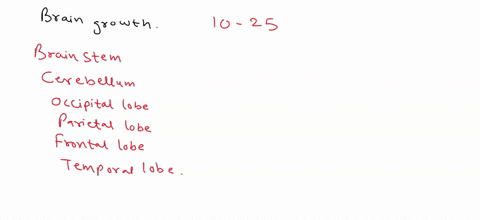 Brain growth. 10-25
Brain stem
Cerebellum
Occipital lobe
Parietal lobe
Frontal lobe
Temporal lobe.